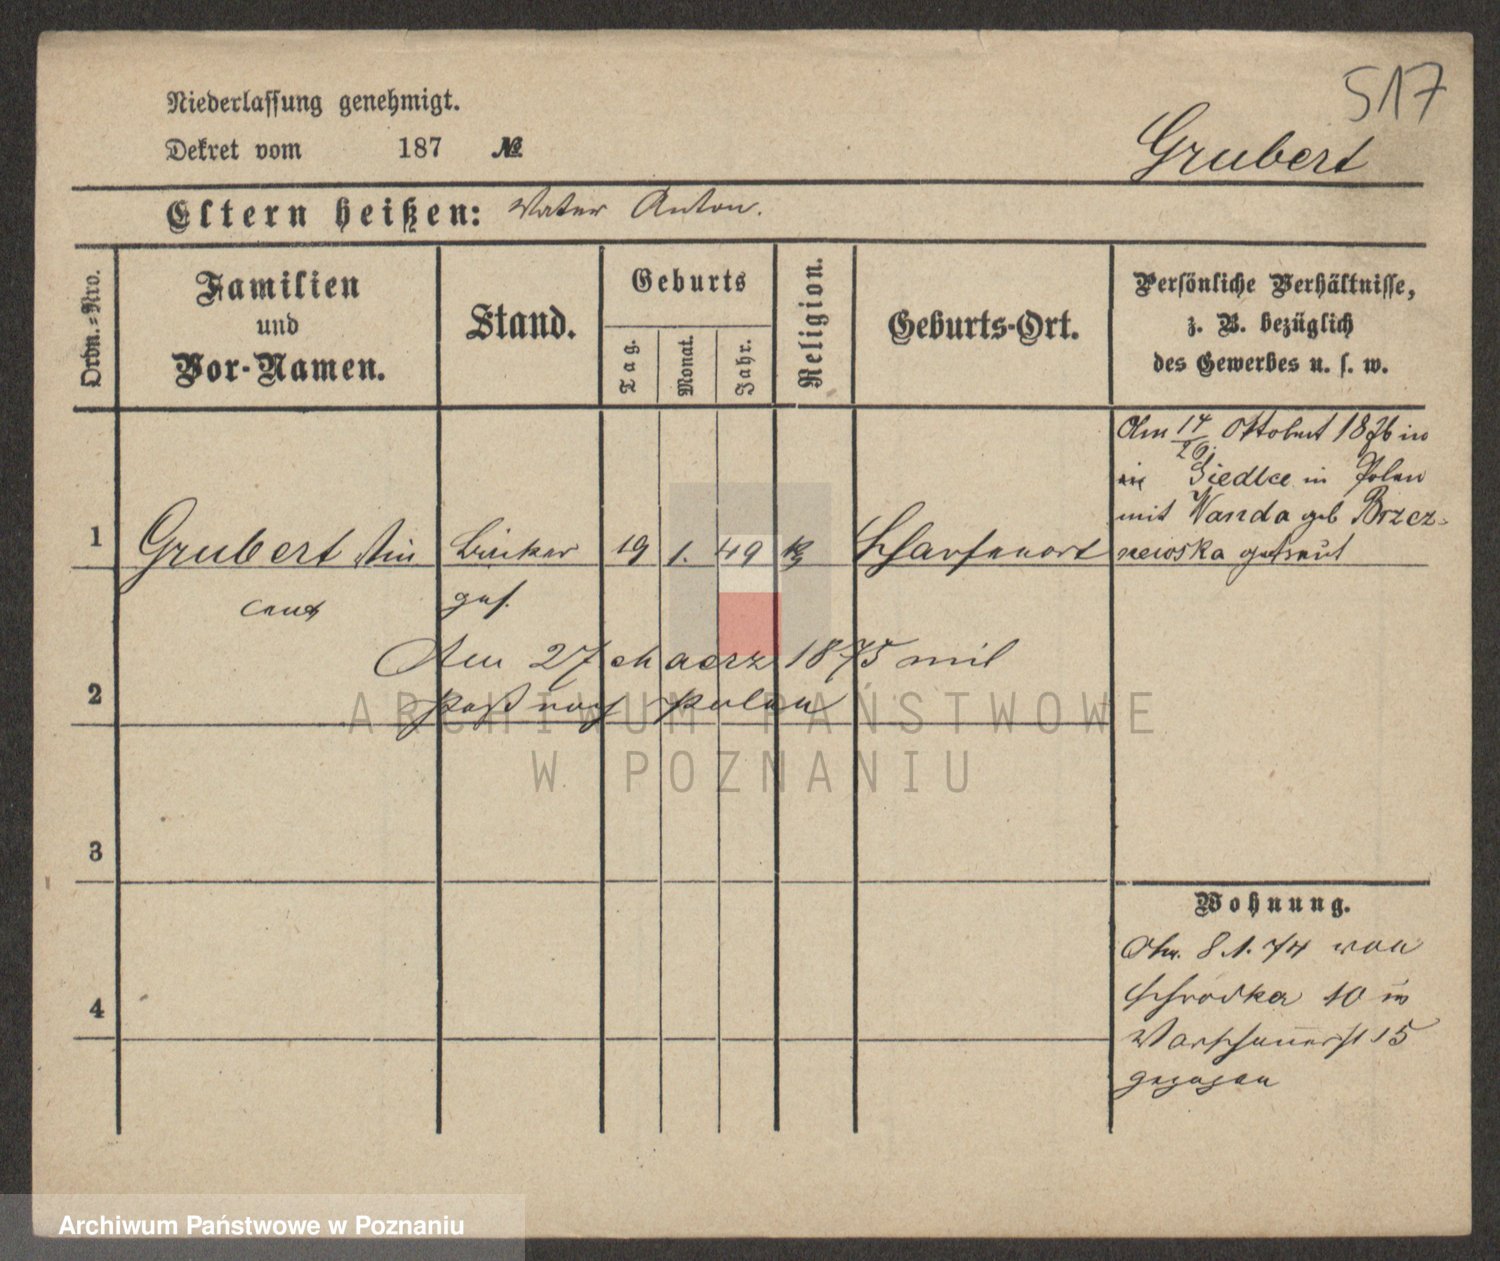 517
Niederlassung genehmigt.
Dekret vom 187 №
Grubert
Eltern heißen: Vater Anton.
Ordn.-Nro.
Familien
und
Vor-Namen.
Stand.
Geburts
Tag.
Monat.
Jahr.
Religion.
Geburts-Ort.
Persönliche Verhältnisse,
z. B. bezüglich
des Gewerbes u. s. w.
Am 14/26 Oktober 1876 in
in Siedlce in Polen
mit Wanda geb Brzez-
newska getraut
1 Grubert Vin 19 1. 49 k Scharfenort
cent
ges.
Am 27 Maerz 1875 mit
Paß nach Polen
2
ARCHIWUM PAŃSTWOWE
W POZNANIU
3
Wohnung.
Am. 8.1.74 von
Schrodka 10 in
Warschauerst 15
gezogen
4
Archiwum Państwowe w Poznaniu